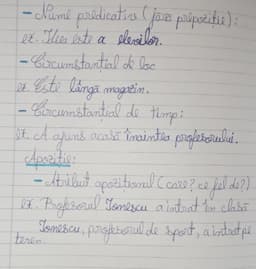 - Nume predicativ (fără prepoziție):
ex. Ideea este a elevilor.
- Circumstanțial de loc
ex. Este lângă magazin.
- Circumstanțial de timp:
ex. A ajuns acasă înaintea profesorului.
Apoziție:
- Atribut apozițional (care? ce fel de?)
ex. Profesorul Ionescu a intrat în clasă
Ionescu, profesorul de sport, a intrat pe
teren.